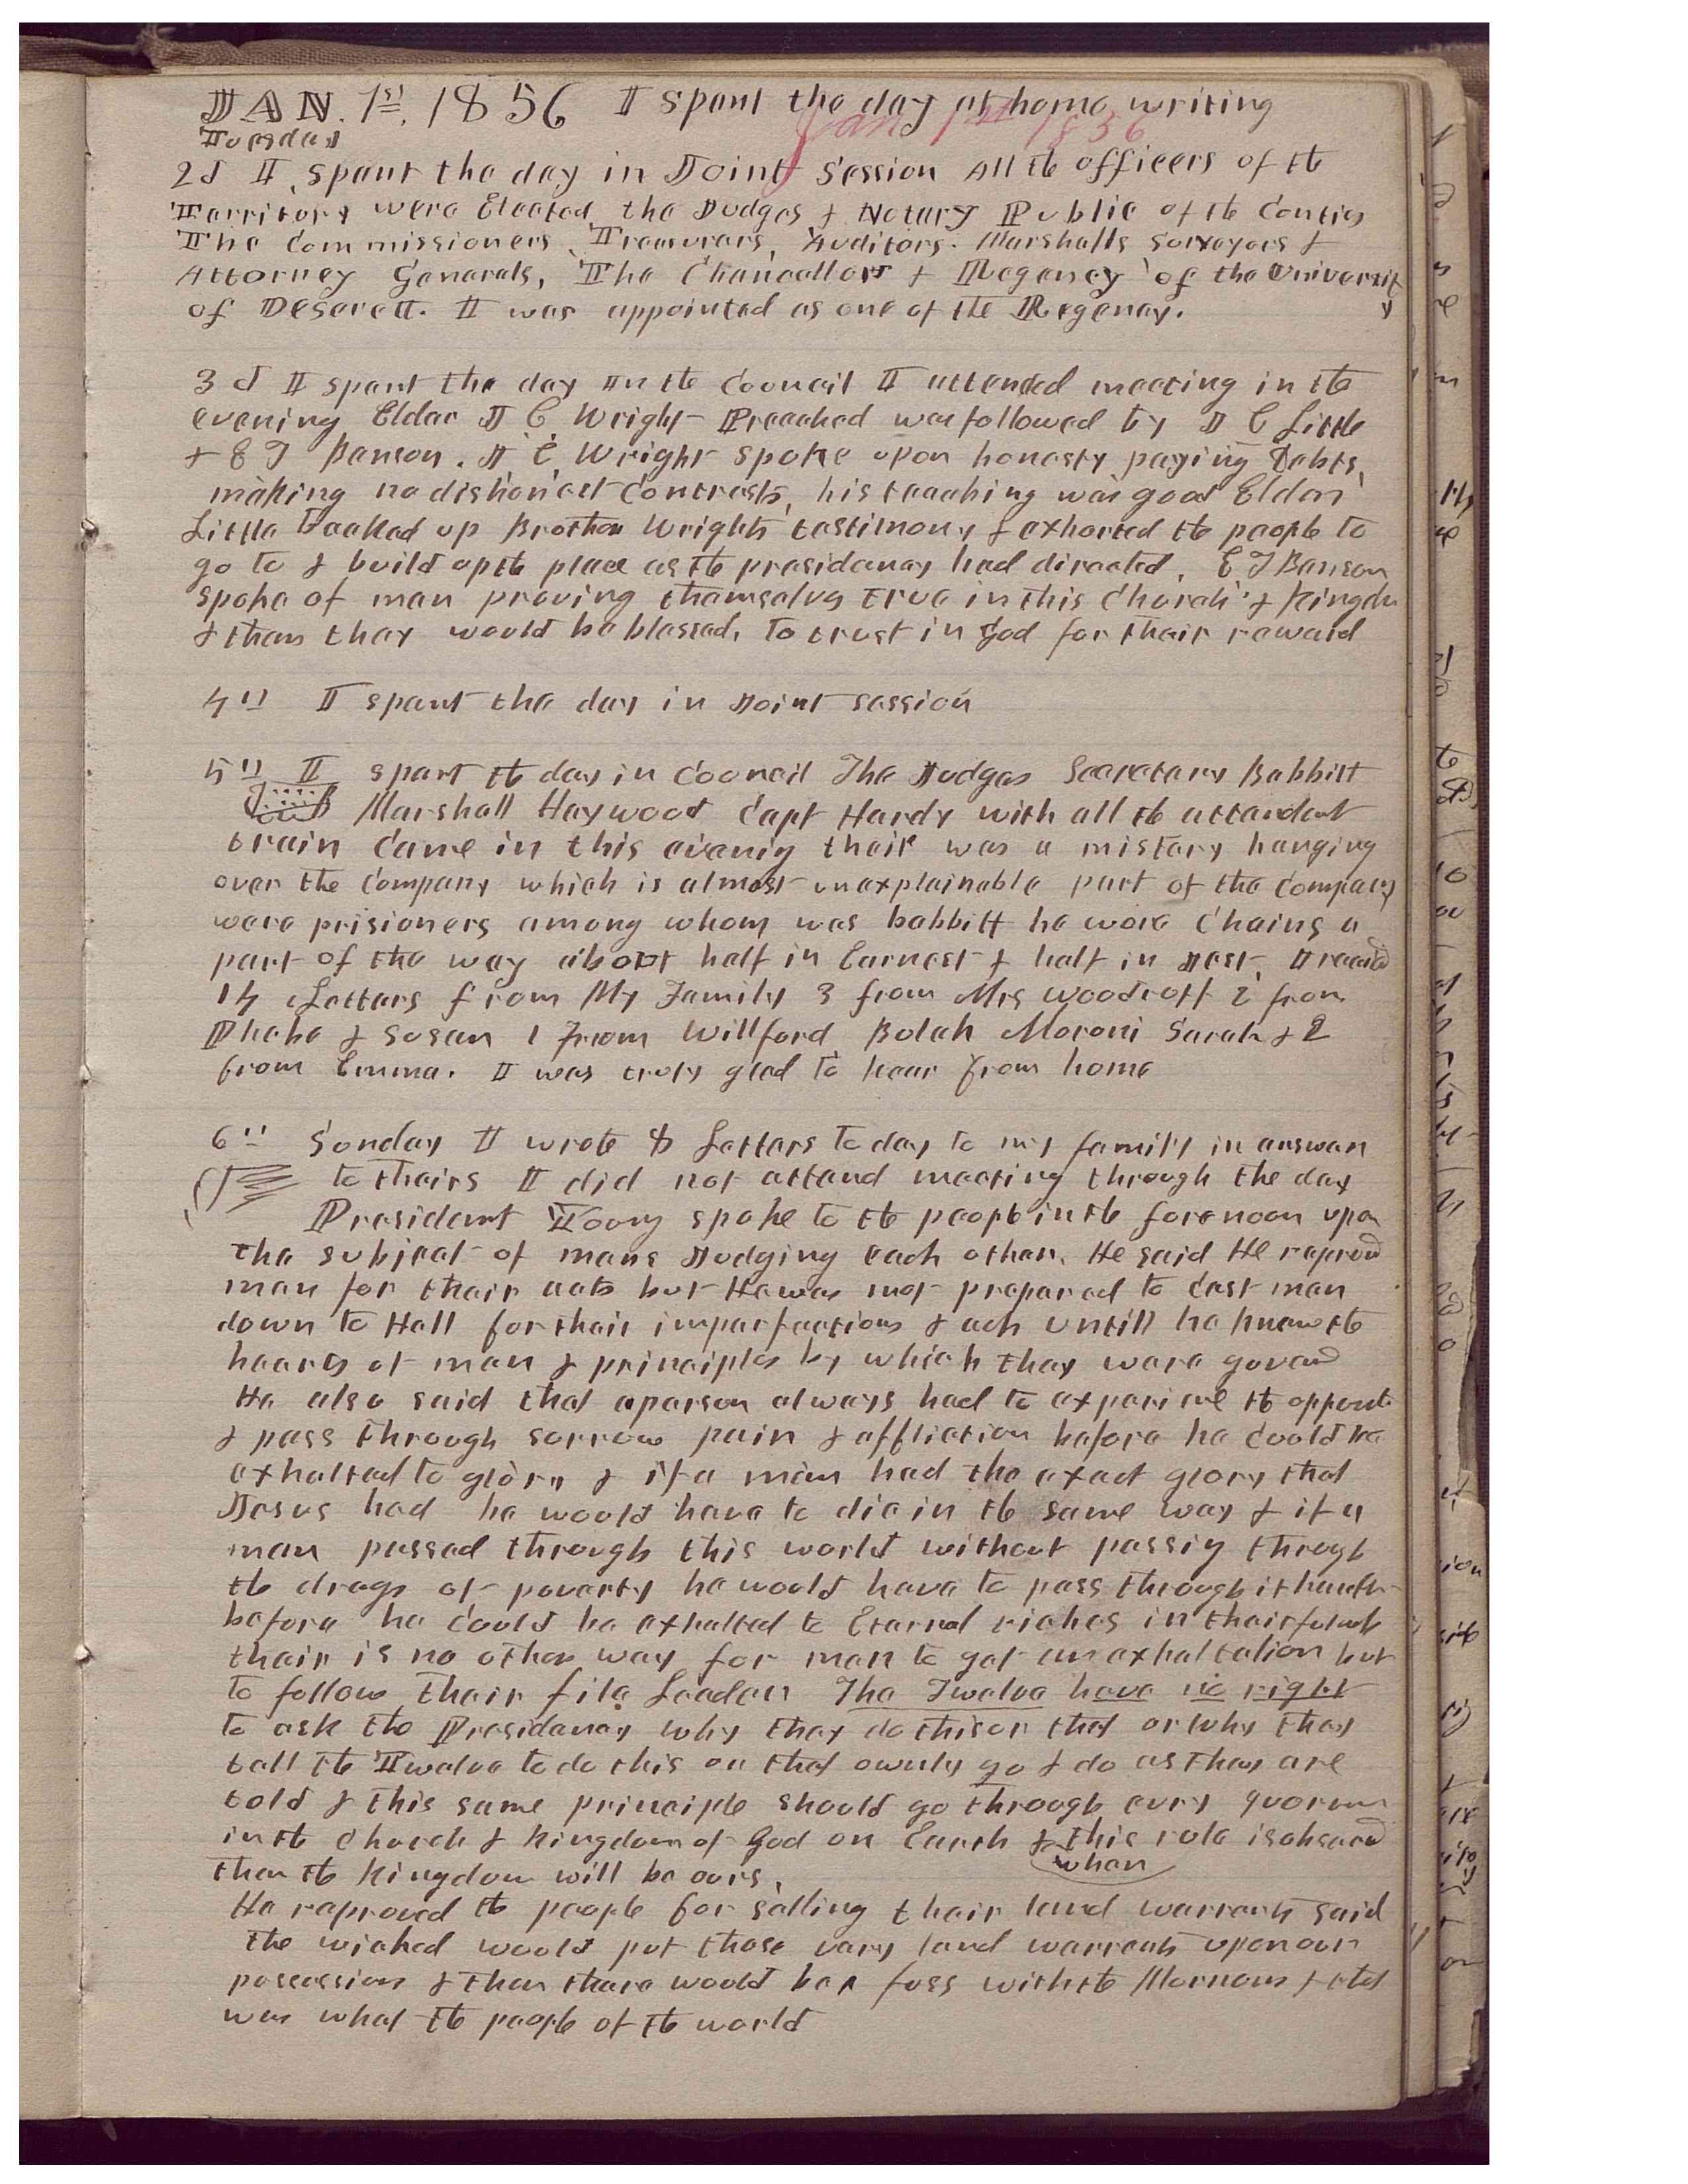 JAN. 1st, 1856 I spent the day at home writing
Tuesday
Jan 1st 1856
2d I spent the day in Joint Session All the officers of the
Territory were Elected the Judges & Notary Public of the Conties
The Commissioners Treasurers, Auditors. Marshalls Surveyors &
Attorney Generals, The Chancellors & Regency of the Universit
y
of Deserett. I was appointed as one of the Regency.
3d I spent the day in the Council I attended meeting in the
evening Elder J C Wright Preached was followed by J C Little
& E T Benson. J C Wright spoke upon honesty paying debts,
making no dishonest Contracts, his teaching was good Elder
Little Backed up Brother Wrights testimony & exhorted the people to
go to & build up the place as the presidency had directed. E T Benson
spoke of men proving themselves true in this Church & Kingdm
& then they would be blessed, to trust in God for their reward
4th I spent the day in Joint session
5th I spent the day in Council The Judges Secretary Babbitt
Marshall Haywood Capt Hardy with all the attendant
train Came in this evenig their was a mistery hanging
over the Company which is almost unexplainable part of the company
were prisioners among whom was babbitt he wore Chains a
part of the way about half in Earnest & half in Jest, I receivd
14 Letters from My Family 3 from Mrs Woodruff 2 from
Phebe & Susan 1 from Willford Bulah Moroni Sarah & 2
from Emma. I was truly glad to hear from home
6th Sunday I wrote 8 Letters to day to my family in answer
to theirs I did not attend meeting through the day
President Young spoke to the people in the forenoon upon
the subject of mens Judging each other. He said He reprovd
men for their acts but He was not prepared to cast men
down to Hell for their imperfections & acts untill he knew the
hearts of men & principles by which they were govend
He also said that a person always had to experience the opposite
& pass through sorrow pain & affliction before he could be
exhalted to glory & if a man had the exact glory that
Jesus had he would have to die in the same way & if a
man passed through this world without passig through
the dregs of poverty he would have to pass through it
before he could be exhalted to Eternal riches in their fulness
their is no other way for man to get an exhaltation but
to follow their file Leader The Twelve have no right
to ask the Presidency why they do this or that or why they
tell the Twelve to do this or that ownly go & do as they are
told & this same principle should go through evry quorum
in the Church & Kingdom of God on Earth & this rule is obsevd
when
then the Kingdom will be ours,
He reproved the people for selling their land warrents said
the wicked would put those very land warrents upon our
possessions & then there would be a fuss with the Mormons & that
was what the people of the world